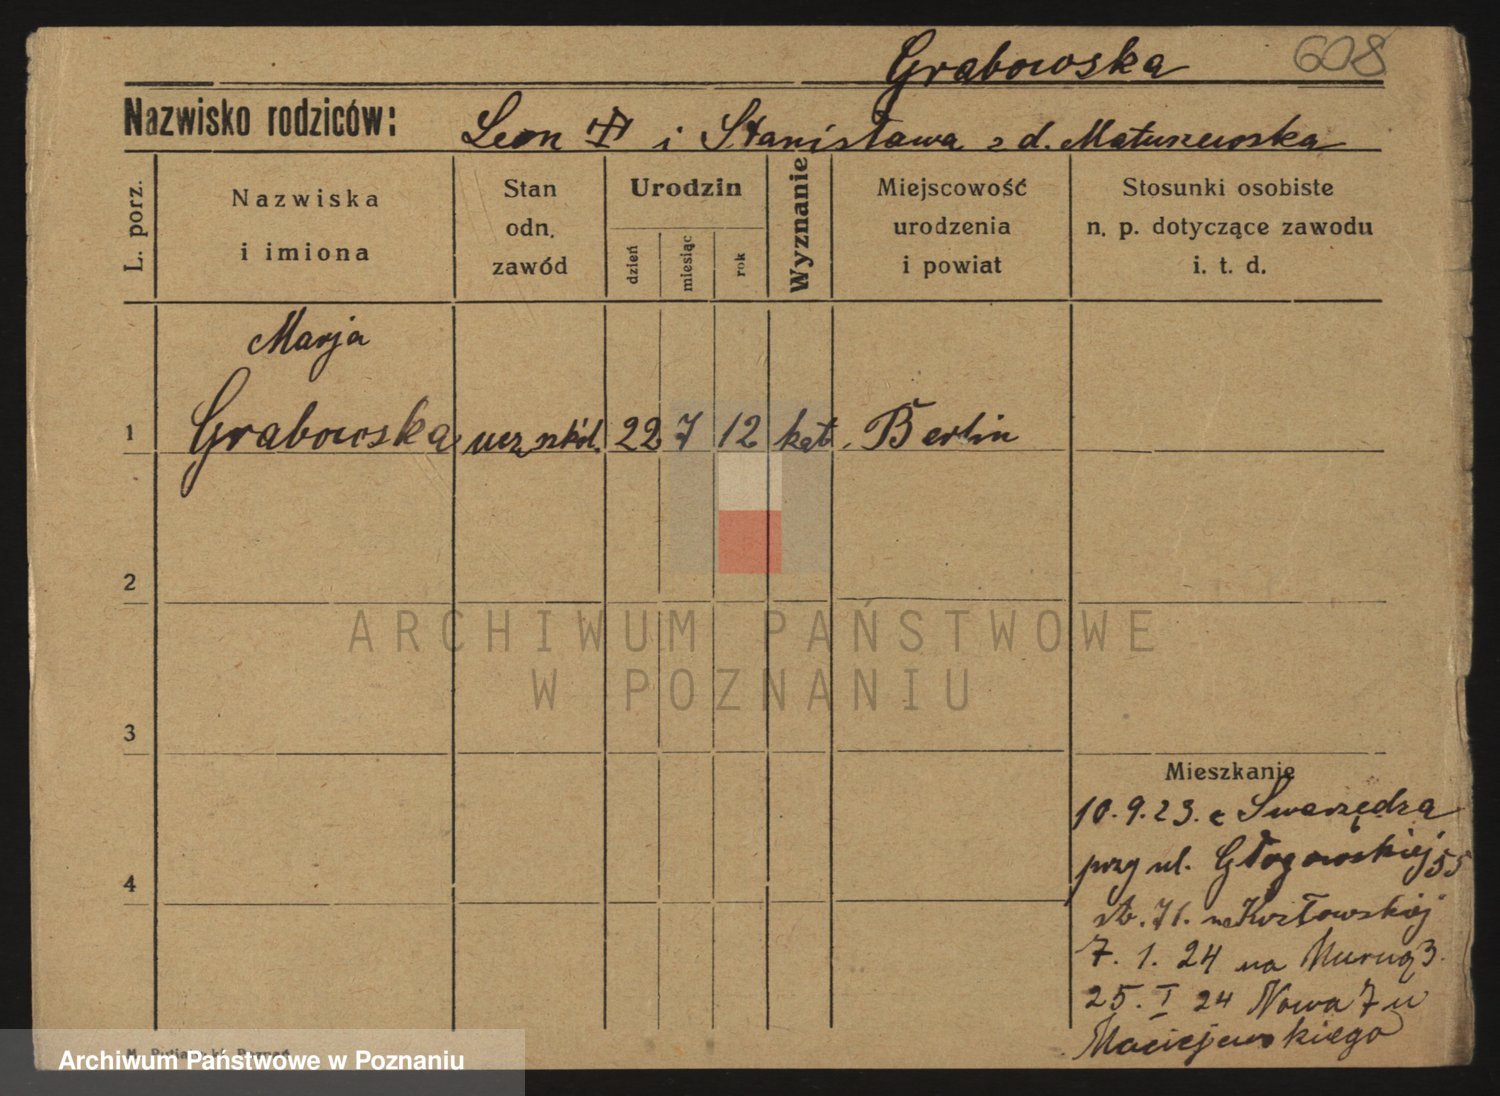 Grabowska 608
Nazwisko rodziców: Leon i Stanisława z d. Matuszewska
L. porz.
Nazwiska
i imiona
Stan
odn.
zawód
Urodzin
dzień
miesiąc
rok
Wyznanie
Miejscowość
urodzenia
i powiat
Stosunki osobiste
n. p. dotyczące zawodu
i. t. d.
Marja
1 Grabowska ucz. szkol. 22 7 12 kat. Berlin
2
ARCHIWUM PAŃSTWOWE
W POZNANIU
3
Mieszkanie
10.9.23. z Swarzędza
przy ul. Głogowskiej 55
4
7. 1. 24 na Murną 3.
25. I 24 Nowa 7 u
Maciejewskiego
Archiwum Państwowe w Poznaniu